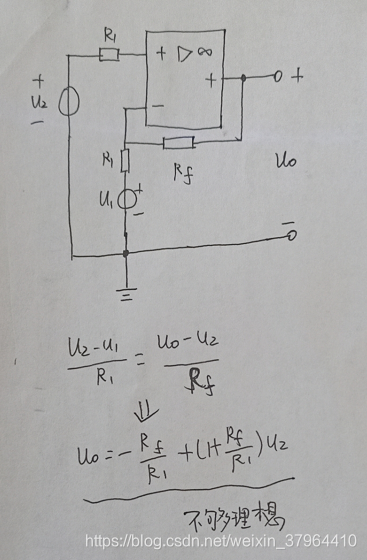 R₁
+ ▷ ∞
+
+
+
U₂
−
−
R₁
Rf
U₀
U₁
+
−
−
(U₂-U₁)/R₁ = (U₀-U₂)/Rf
⇓
U₀=-Rf/R₁+(1+Rf/R₁)U₂
不够理想
https://blog.csdn.net/weixin_37964410